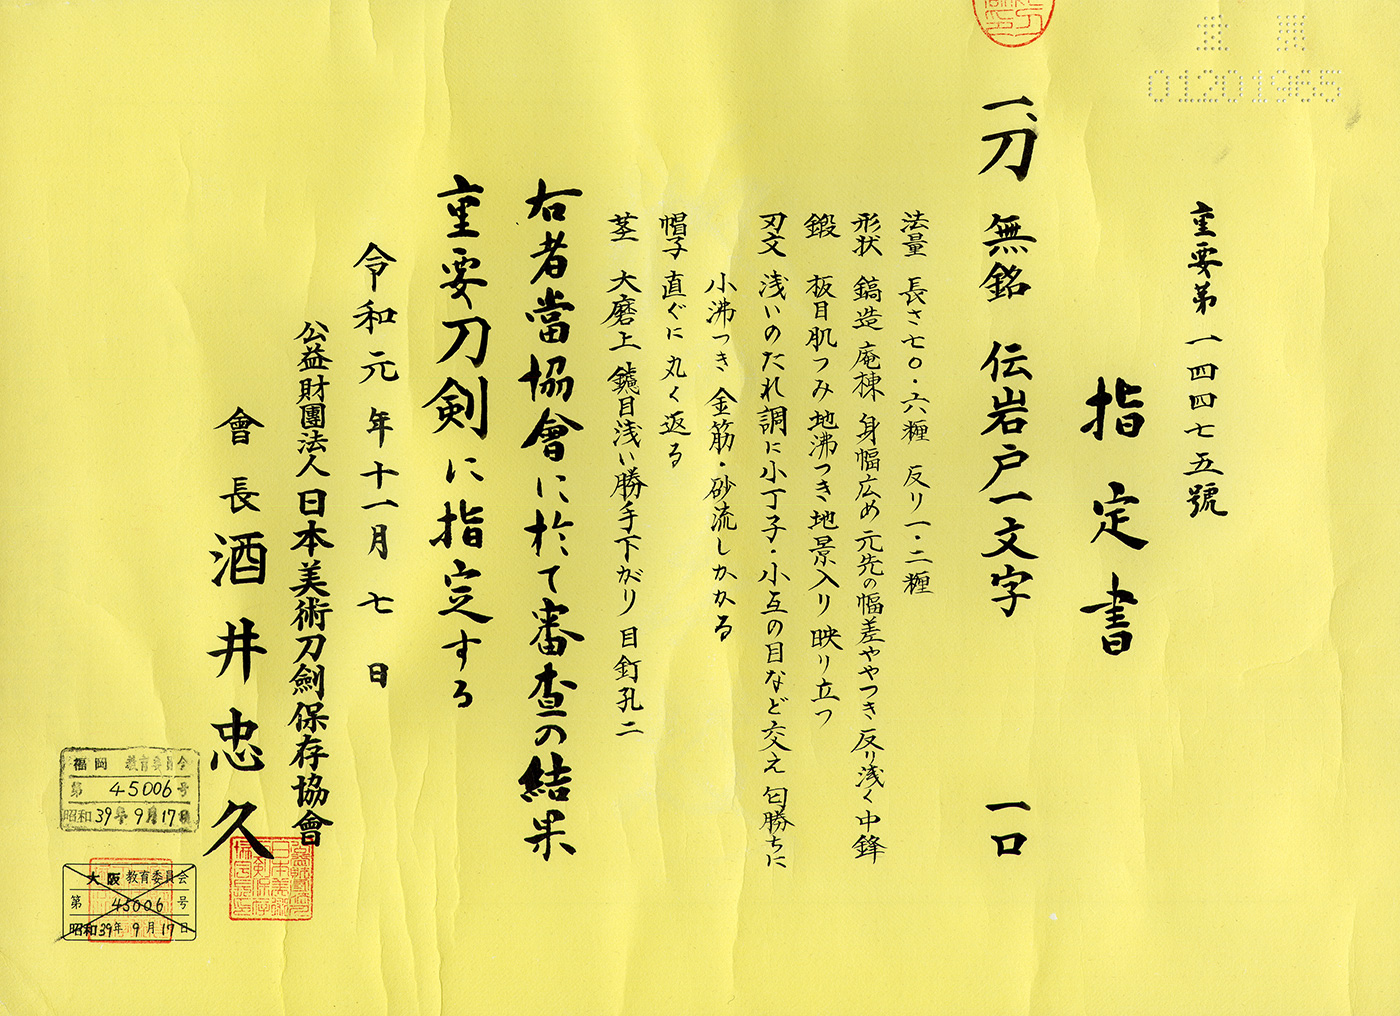 重要第一四四七五號
指定書
一、刀 無銘 伝岩戸一文字 一口
法量 長さ七〇・六糎 反り一・二糎
形状 鎬造 庵棟 身幅広め 元先の幅差ややつき 反り浅く中鋒
鍛 板目肌つみ 地沸つき 地景入り 映り立つ
刃文 浅いのたれ調に小丁子・小互の目など交え 匂勝ちに
小沸つき 金筋・砂流しかかる
帽子 直ぐに丸く返る
茎 大磨上 鑢目浅い勝手下がり 目釘孔二
右者當協會に於て審査の結果
重要刀剣に指定する
令和元年十一月七日
公益財團法人日本美術刀劍保存協會
會長 酒井忠久
重 異
01201965
福岡 教育委員会
第 45006 号
昭和39年9月17日
大阪教育委員会
第 45006 号
昭和39年9月17日